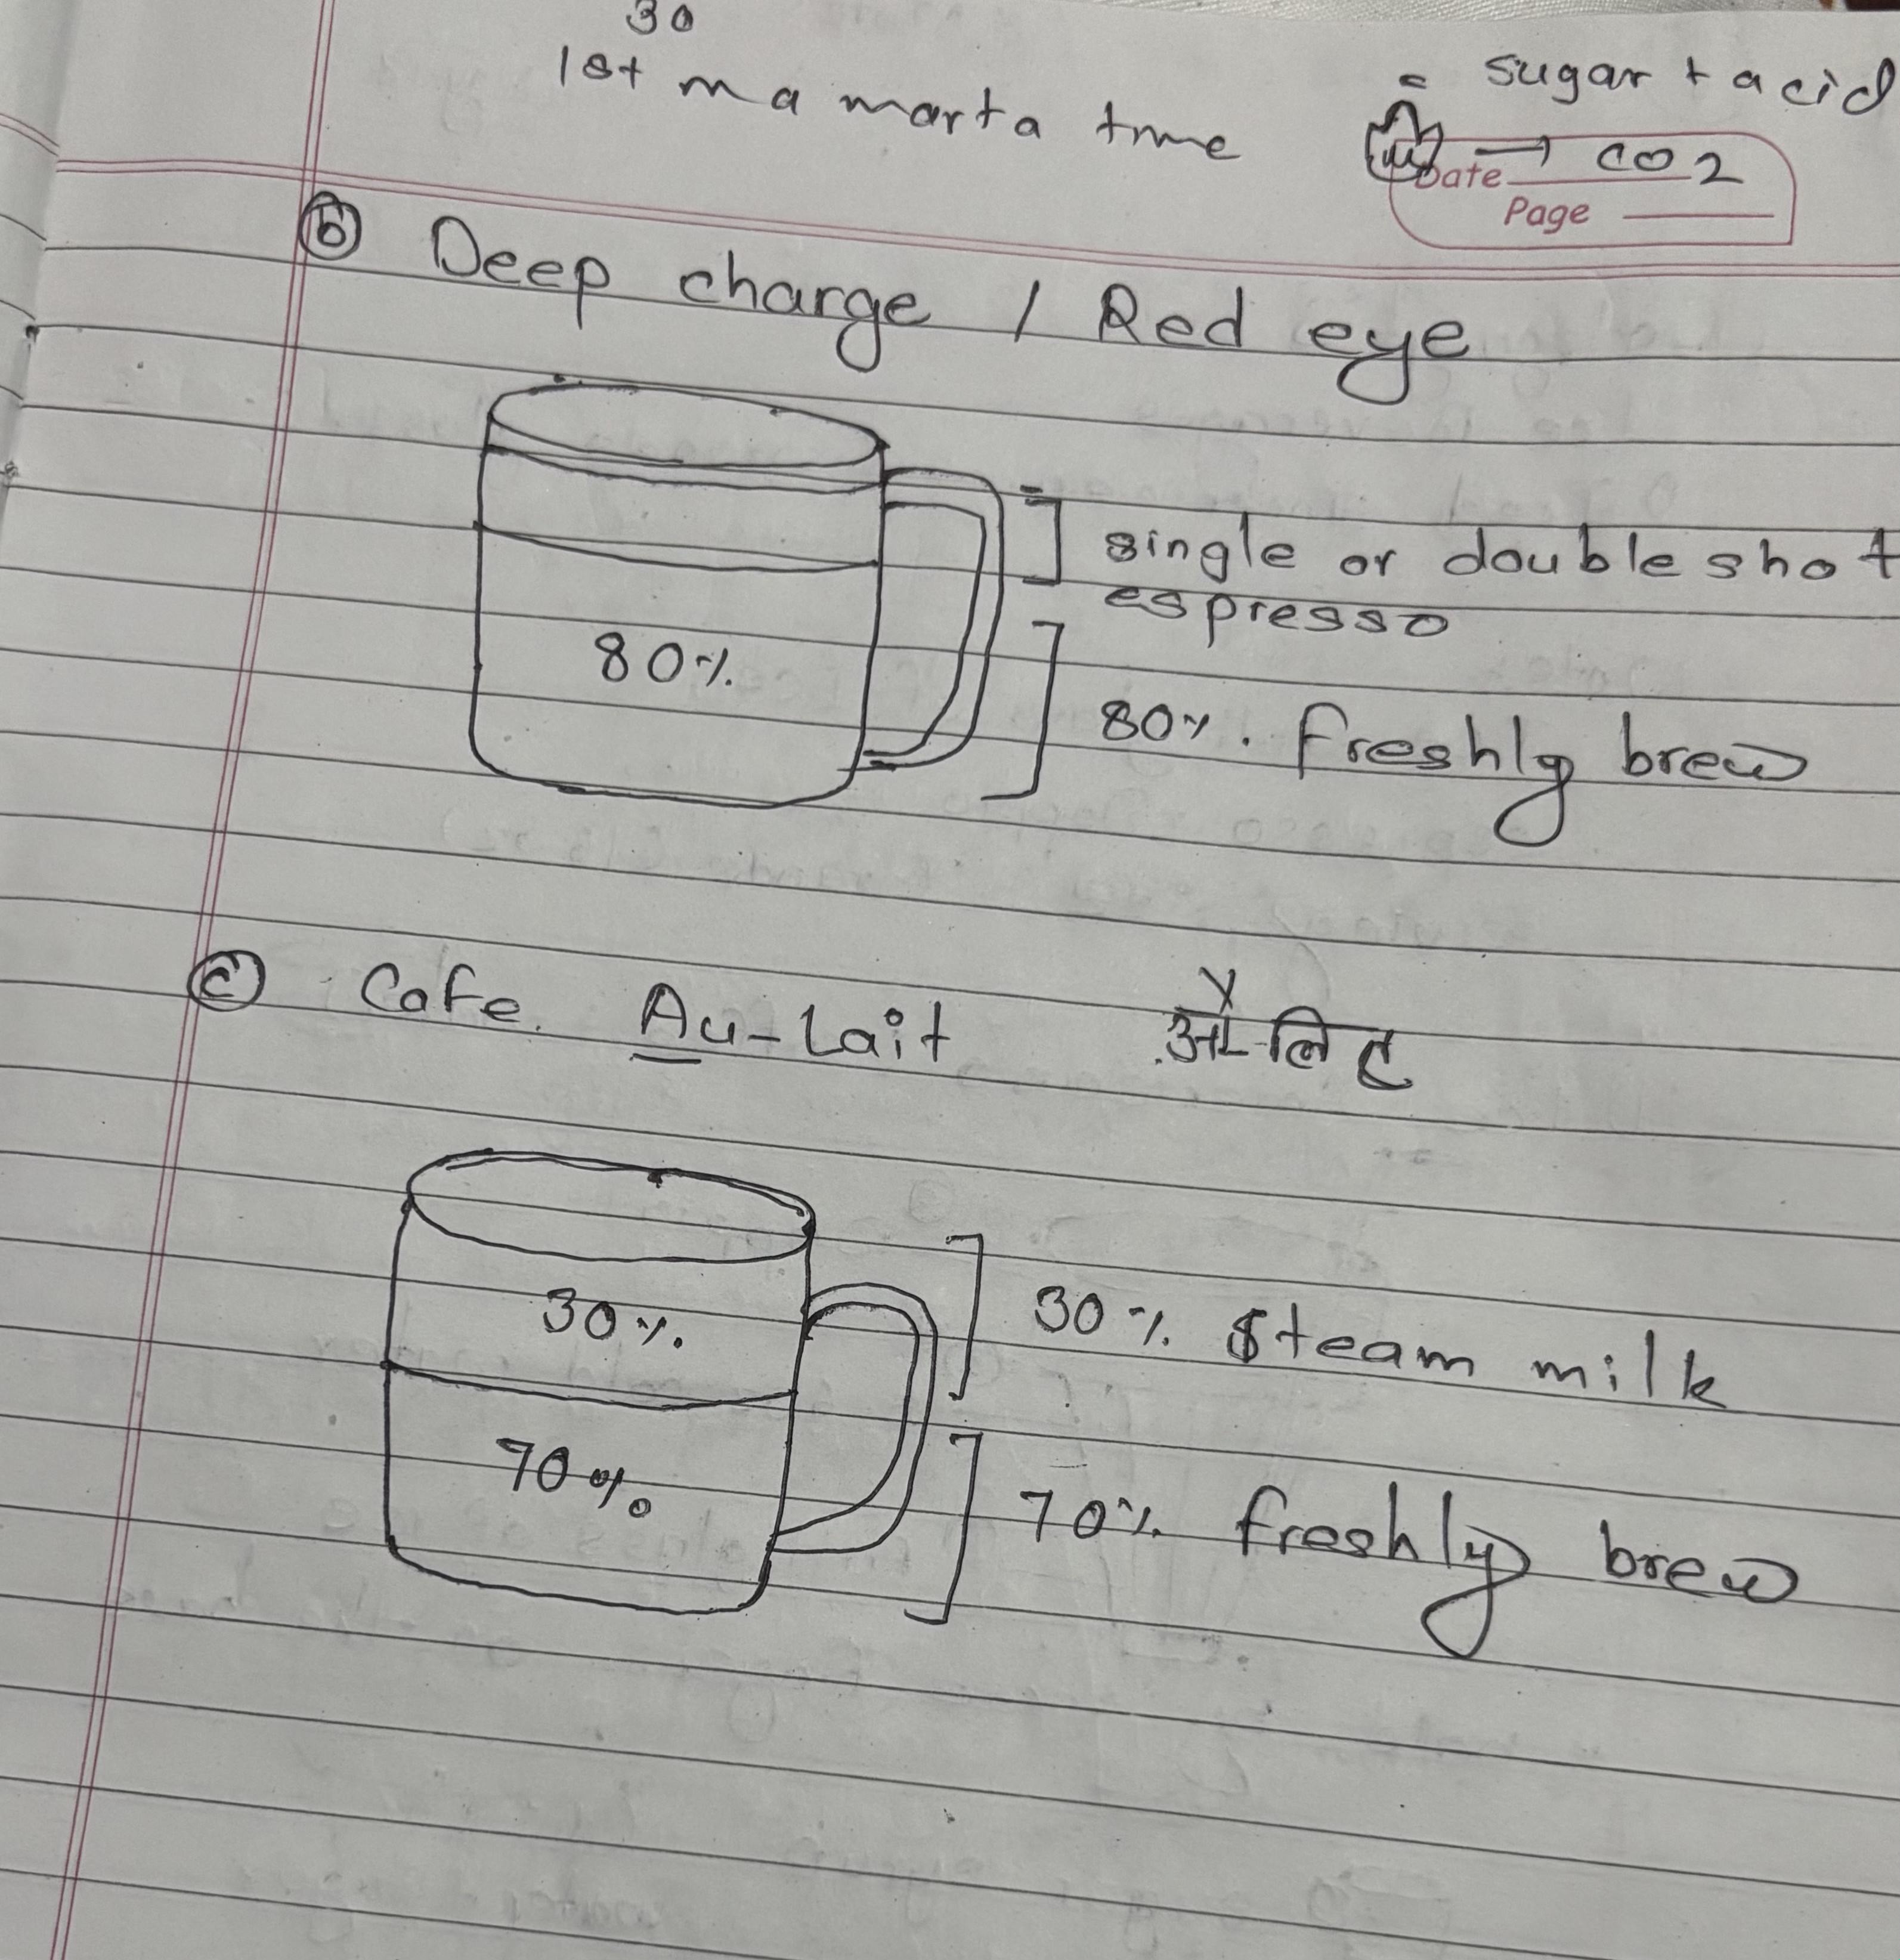 30
1st ma marta time
= sugar + acid
→ CO2
Date
Page
(b) Deep charge / Red eye
single or double shot
espresso
80%
80%. Freshly brew
(c) Cafe. Au-Lait
30%
30% Steam milk
70%
70% freshly brew